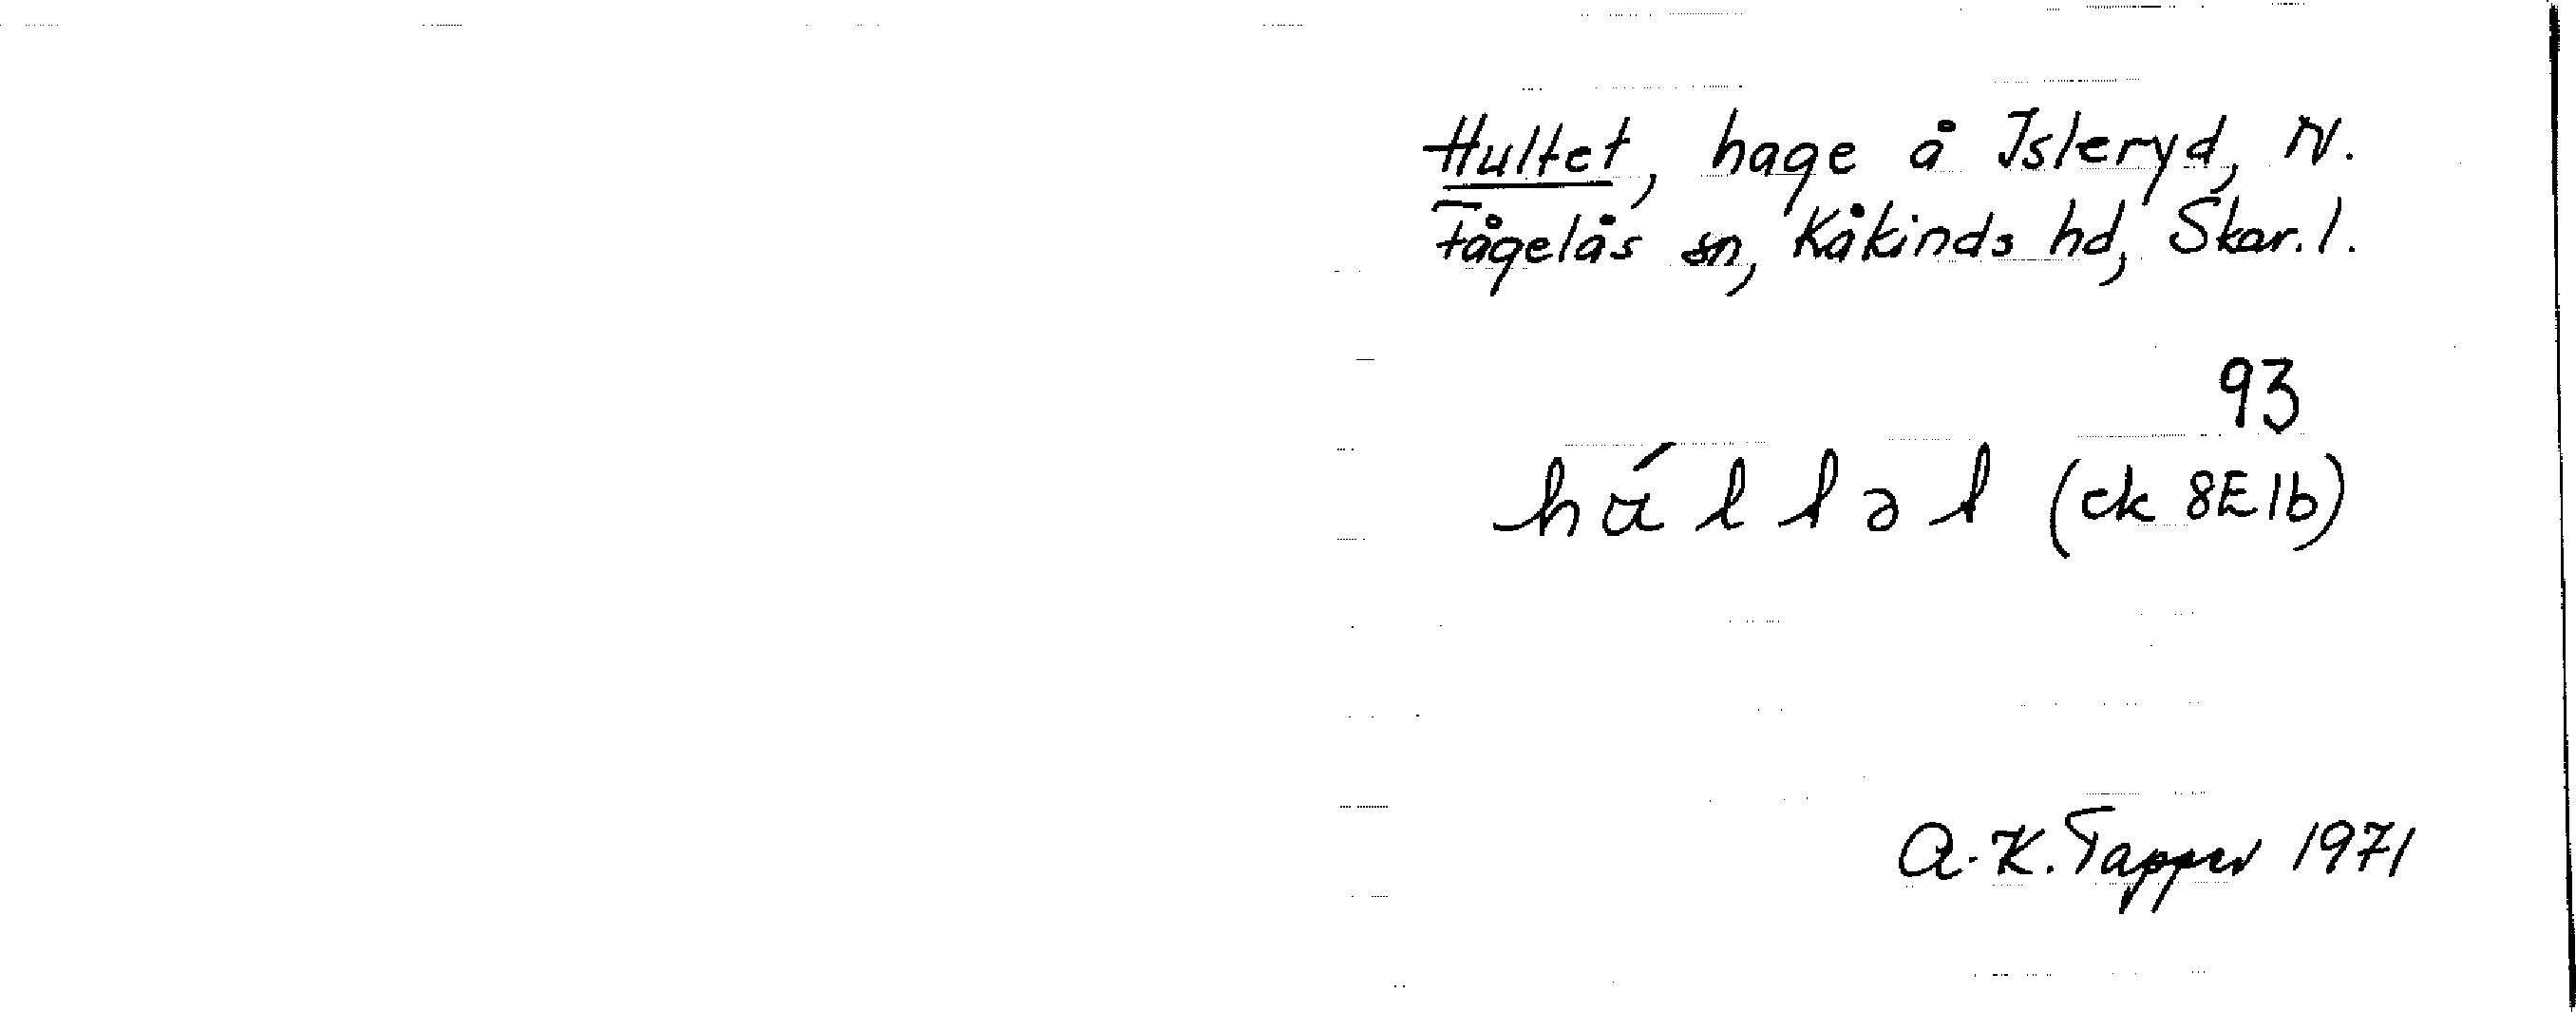 Hultet, hage å Isleryd, N.
Fågelås sn, Kåkinds hd, Skar. l.
93
(ek 8E1b)
A-K. Tapper 1971